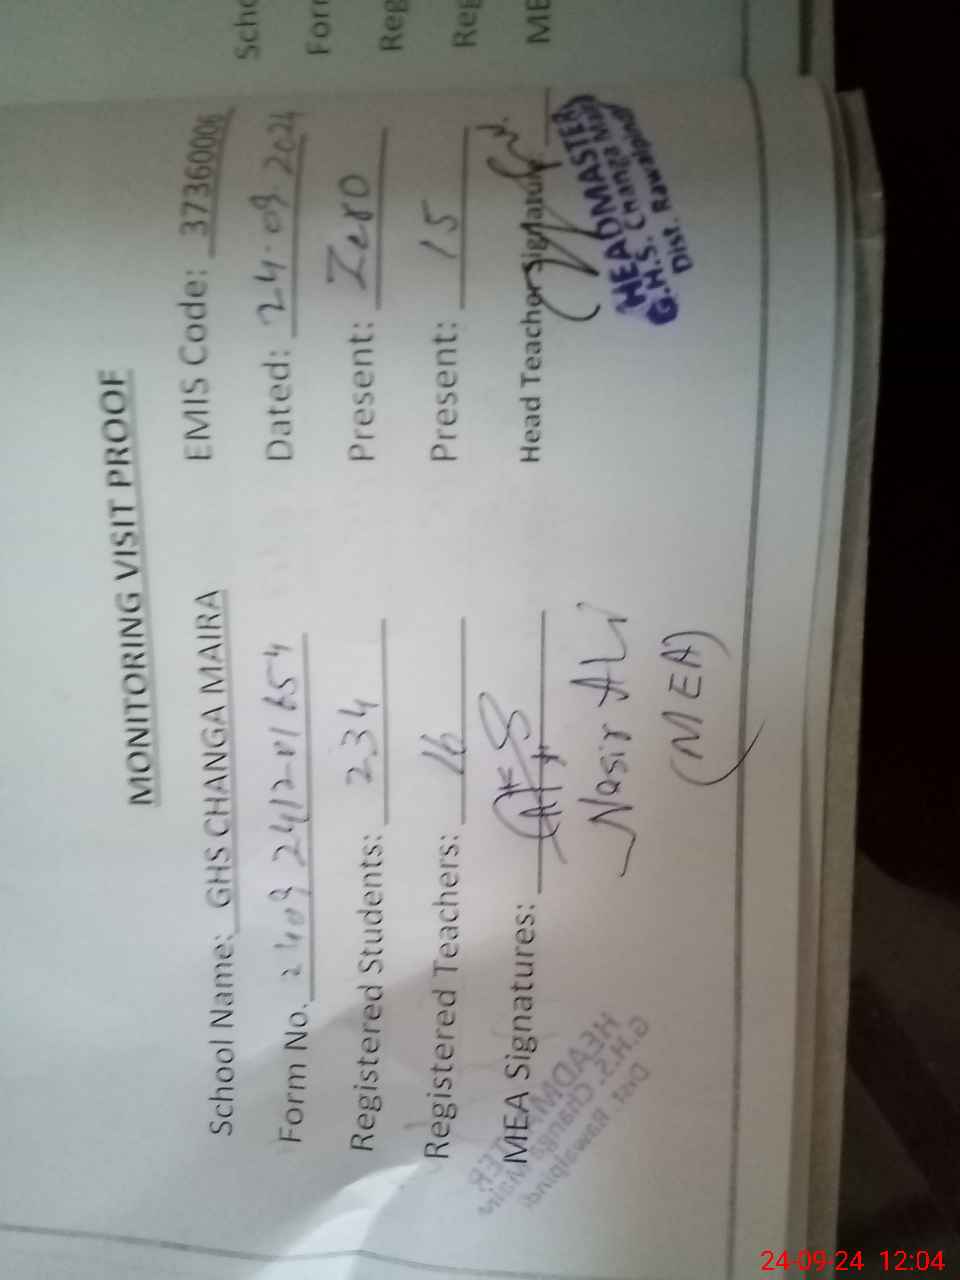 Scho
Form
Reg
Reg
ME
MONITORING VISIT PROOF
School Name: GHS CHANGA MAIRA EMIS Code: 37360006
Form No. Dated: 24-09-2024
Registered Students: 234 Present: Zero
Registered Teachers: 16 Present: 15
MEA Signatures: Head Teacher Signature
Nasir ALi
(MEA)
HEADMASTER
G.H.S. Changa Maira
Dist. Rawalpindi
HEADMASTER
G.H.S. Changa Maira
Dist. Rawalpindi
24-09-24 12:04